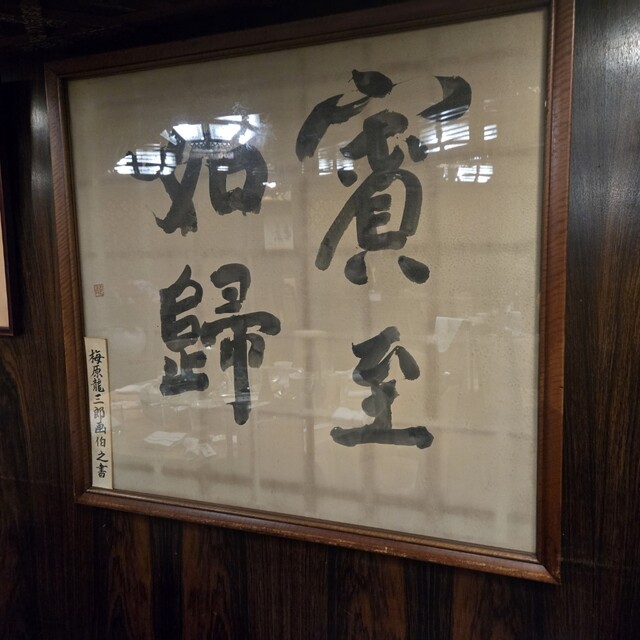 賓至
如歸
梅原龍三郎画伯之書